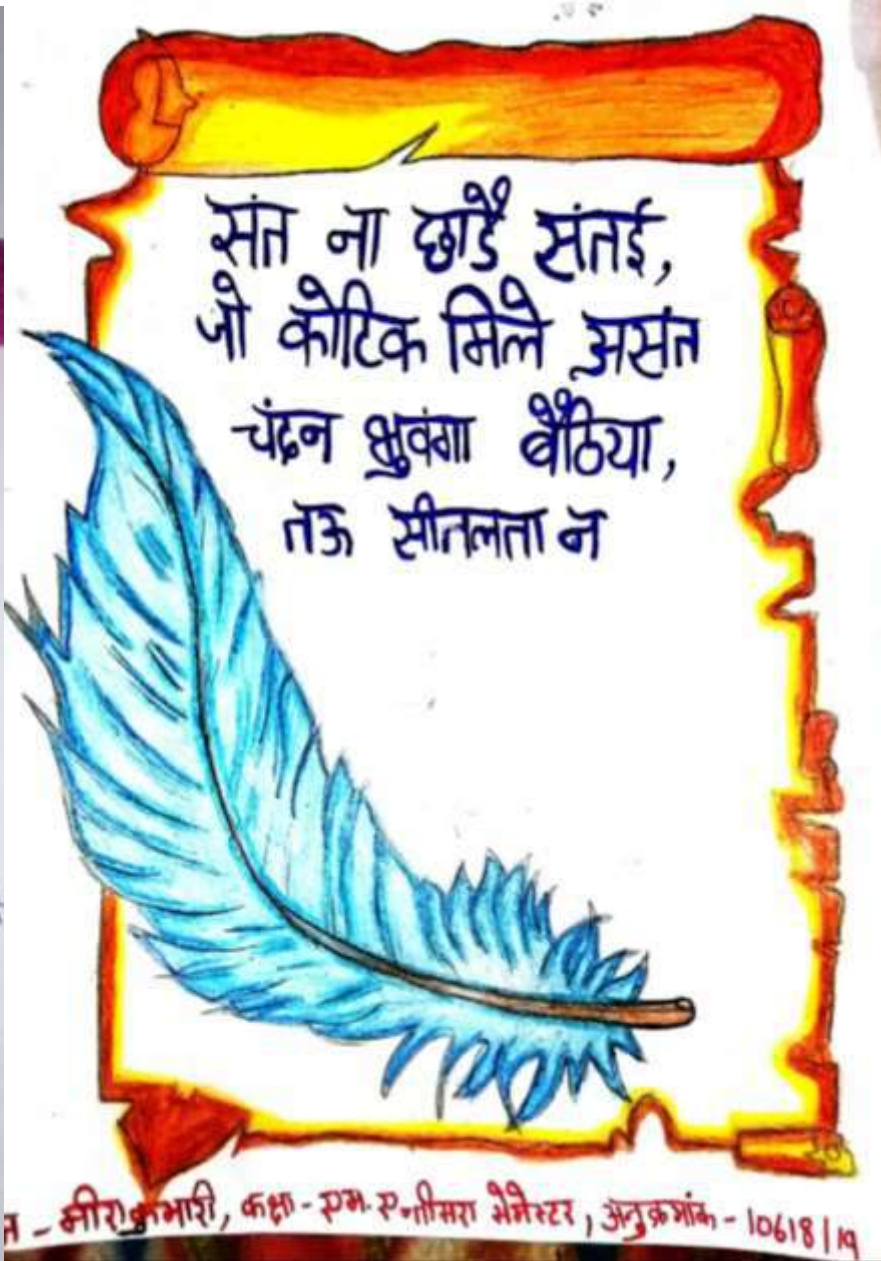 संत ना छाडै संतई,
जो कोटिक मिले असंत
चंदन भुवंगा बैठिया,
तऊ सीतलता न
- मीरा कुमारी, कक्षा - एम. ए. तीसरा सेमेस्टर, अनुक्रमांक - 10618/19